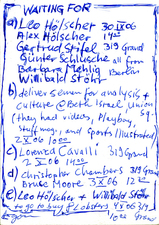 WAITING FOR
a) Leo Hölscher 30 IX 06
Alex Hölscher 14 00
Gertrud Stifel 319 Grand
Günter Schlusche all from
Barbara Mehlig Berlin
Willibald Stöhr
b) deliver semen for analysis +
culture @ Beth Israel Union
(they had videos, Playboy,
Stuff mag, and Sports Illustrated)
2 X 06 10 00
c) Lorenzo Cavalli 319 Grand
2 X 06 14 00
d) Christopher Chambers 319 Grand
Bruce Moore 3 X 06 12 00
e) Leo Hölscher + Willibald Stöhr
to go to buy Lobsters 4 X 06
10 00 Grand